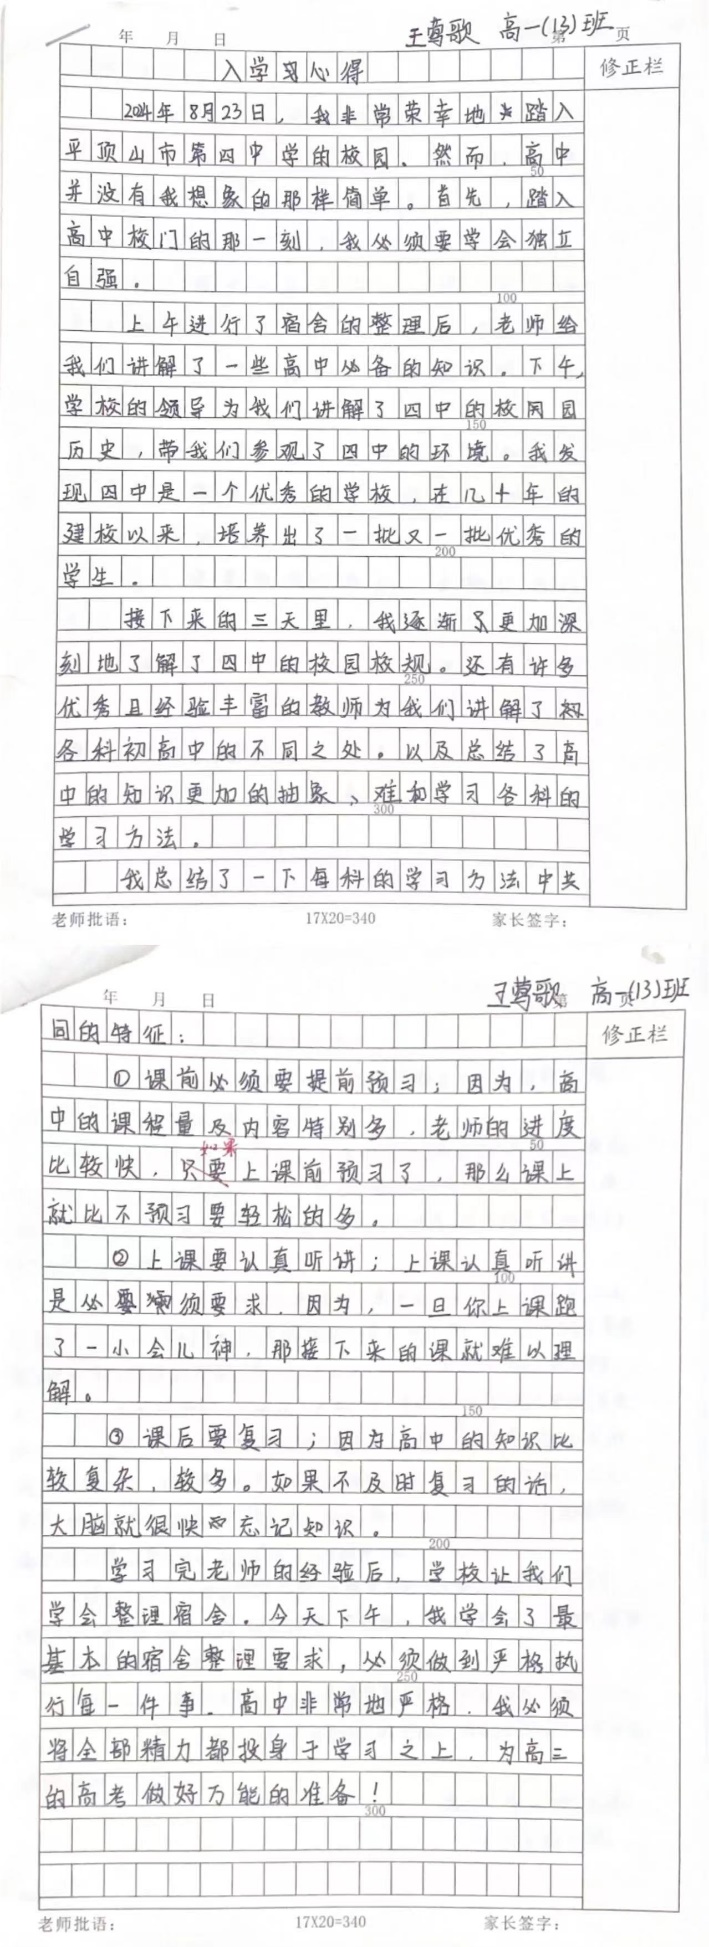 年 月 日 第 页
王莺歌 高一(13)班
修正栏
入学习心得
2024年8月23日，我非常荣幸地踏入
平顶山市第四中学的校园、然而，高中
50
并没有我想象的那样简单。首先，踏入
高中校门的那一刻，我必须要学会独立
自强。
100
上午进行了宿舍的整理后，老师给
我们讲解了一些高中必备的知识。下午，
学校的领导为我们讲解了四中的校园
150
历史，带我们参观了四中的环境。我发
现四中是一个优秀的学校，在几十年的
建校以来，培养出了一批又一批优秀的
200
学生。
接下来的三天里，我逐渐更加深
刻地了解了四中的校园校规。还有许多
250
优秀且经验丰富的教师为我们讲解了
各科初高中的不同之处。以及总结了高
中的知识更加的抽象、难和学习各科的
300
学习方法。
我总结了一下每科的学习方法中共
老师批语： 17X20=340 家长签字：
年 月 日 第 页
王莺歌 高一(13)班
修正栏
同的特征：
①课前必须要提前预习；因为，高
中的课程量及内容特别多，老师的进度
50
如果
比较快，只要上课前预习了，那么课上
就比不预习要轻松的多。
②上课要认真听讲；上课认真听讲
100
是必须要求，因为，一旦你上课跑
了一小会儿神，那接下来的课就难以理
解。
150
③课后要复习；因为高中的知识比
较复杂，较多。如果不及时复习的话，
大脑就很快忘记知识。
200
学习完老师的经验后，学校让我们
学会整理宿舍。今天下午，我学会了最
基本的宿舍整理要求，必须做到严格执
250
行每一件事。高中非常地严格，我必须
将全部精力都投身于学习之上，为高三
的高考做好万能的准备！
300
老师批语： 17X20=340 家长签字：